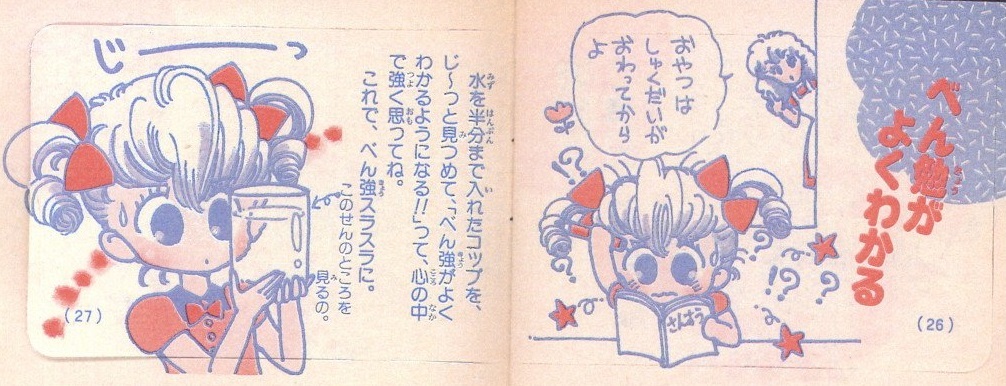 べん強が
よくわかる
おやつは
しゅくだいが
おわってから
よ
?
?
?
?
!?
!?
?
さんすう
(26)
じーっ
水を半分まで入れたコップを、
じ〜っと見つめて、「べん強がよく
わかるようになる!!」って、心の中
で強く思ってね。
これで、べん強スラスラに。
このせんのところを
見るの。
(27)